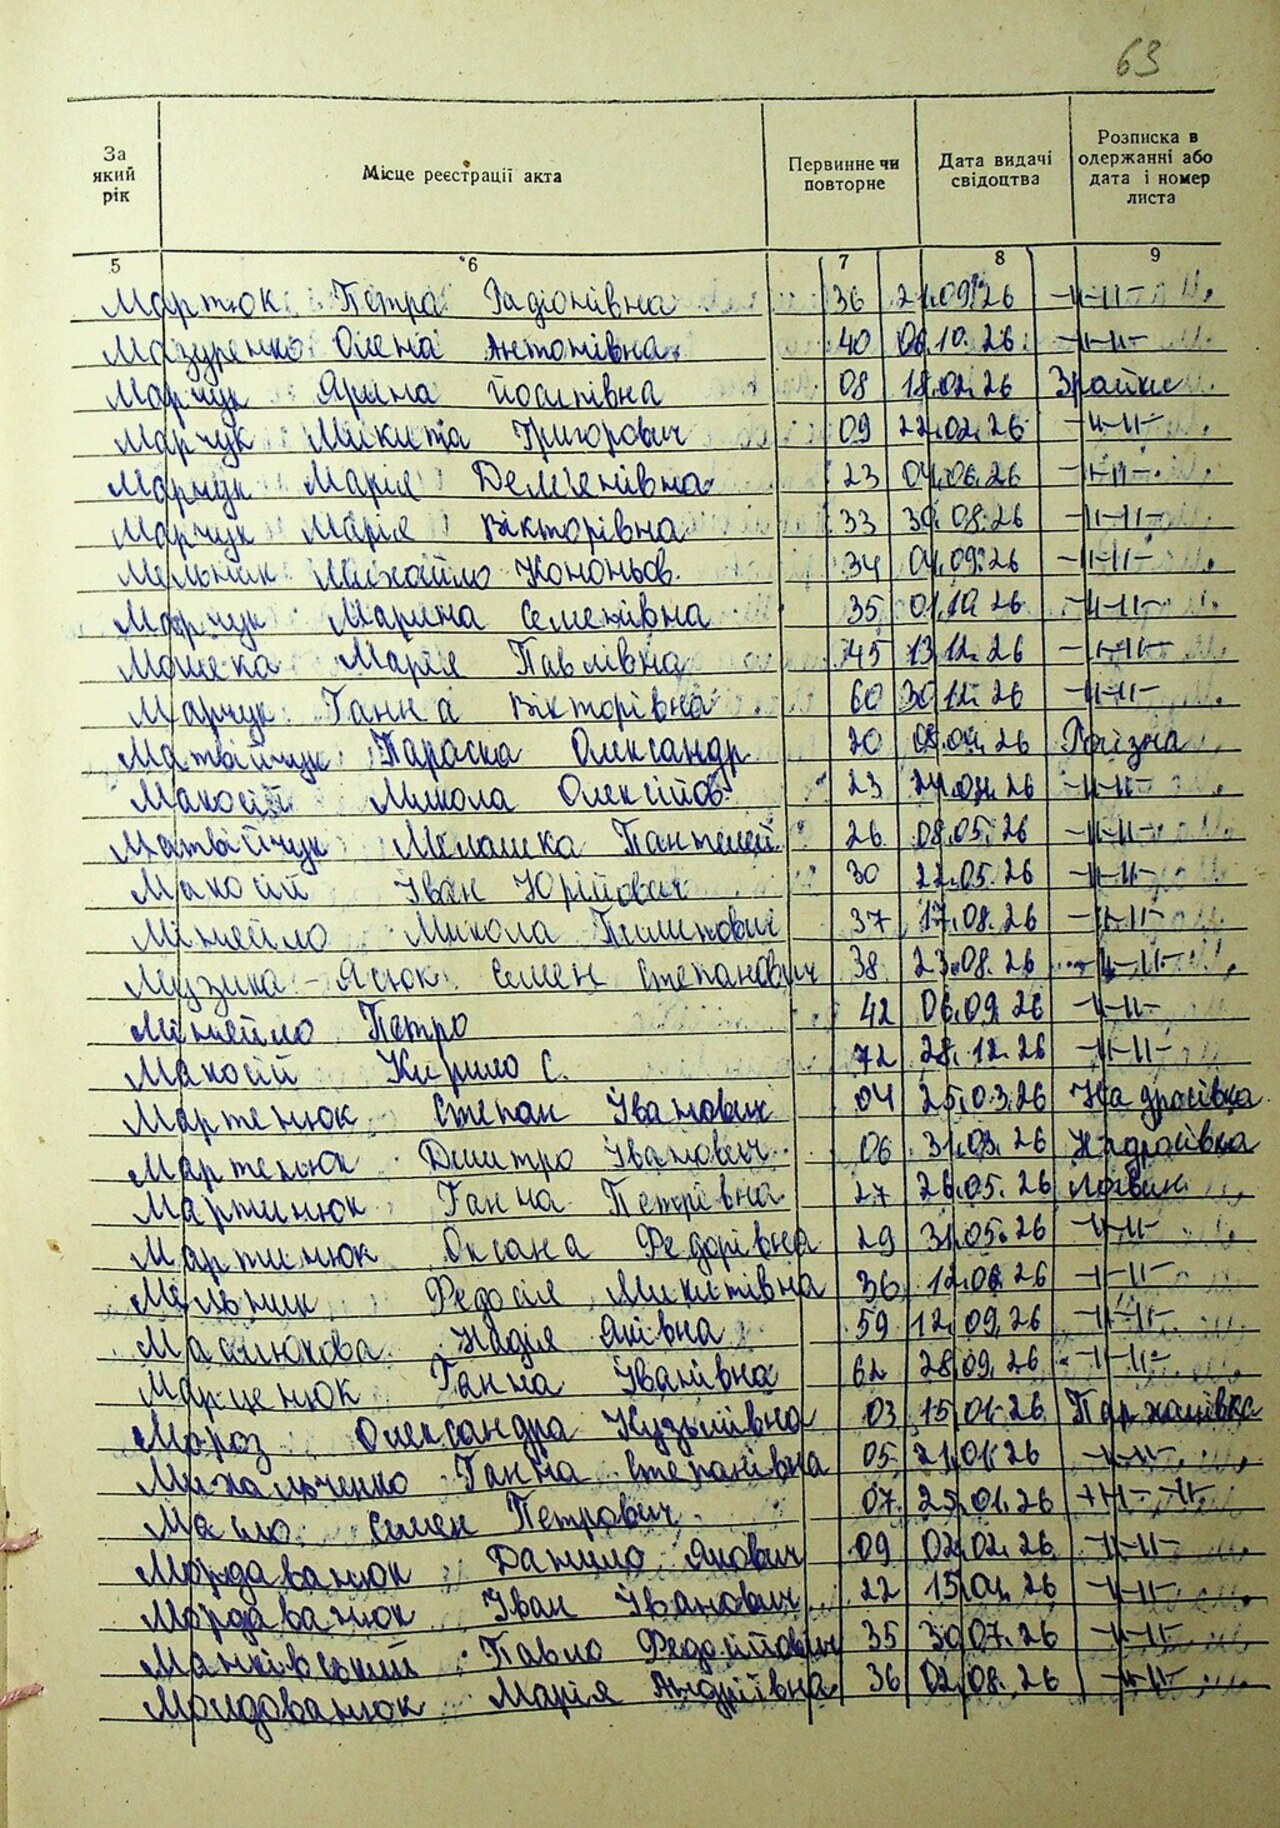 63
За який рік
Місце реєстрації акта
Первинне чи повторне
Дата видачі свідоцтва
Розписка в одержанні або дата і номер листа
5 6 7 8 9
Мартюк Петра Радіонівна 36 21.09.26 -"-"-
Мазуренко Олена Антонівна 40 06.10.26 -"-"-
Марчук Ярина Йосипівна 08 18.02.26 Зрайки
Марчук Микита Григорович 09 22.02.26 -"-"-
Марчук Марія Дем'янівна 23 04.06.26 -"-"-
Марчук Марія Вікторівна 33 30.08.26 -"-"-
Мельник Михайло Кононьов. 34 01.09.26 -"-"-
Марчук Марина Семенівна 35 01.10.26 -"-"-
Мошека Марія Павлівна 45 13.12.26 -"-"-
Марчук Ганна Вікторівна 60 30.12.26 -"-"-
Матвійчук Параска Олександр 20 Рогізна
Макосій Микола Олексійов. 23 26 -"-"-
Матвійчук Мелашка Пантелей. 26 08.05.26 -"-"-
Макосій Іван Юрійович 30 22.05.26 -"-"-
Мінейло Микола Пилипович 37 17.08.26 -"-"-
Музика-Ясюк Семен Степанович 38 23.08.26 -"-"-
Мінейло Петро 42 06.09.26 -"-"-
Макосій Кирило С. 72 28.12.26 -"-"-
Мартенюк Степан Іванович 04 25.03.26 Надросівка
Мартенюк Дмитро Іванович 06 31.03.26 Надросівка
Мартинюк Ганна Петрівна 27 26.05.26 Логвин
Мартинюк Оксана Федорівна 29 31.05.26 -"-"-
Мельник Федосія Микитівна 36 12.06.26 -"-"-
Маслюкова Надія Яківна 59 12.09.26 -"-"-
Марценюк Ганна Іванівна 62 28.09.26 -"-"-
Мороз Олександра Кузьмівна 03 15.01.26 Пархомівка
Михальченко Ганна Степанівна 05 21.01.26 -"-"-
Масло Семен Петрович 07 25.01.26 -"-"-
Мордаванюк Данило Якович 09 02.02.26 -"-"-
Мордаванюк Іван Іванович 22 15.04.26 -"-"-
Маньківський Павло Федосійович 35 30.07.26 -"-"-
Молдованюк Марія Андріївна 36 02.08.26 -"-"-